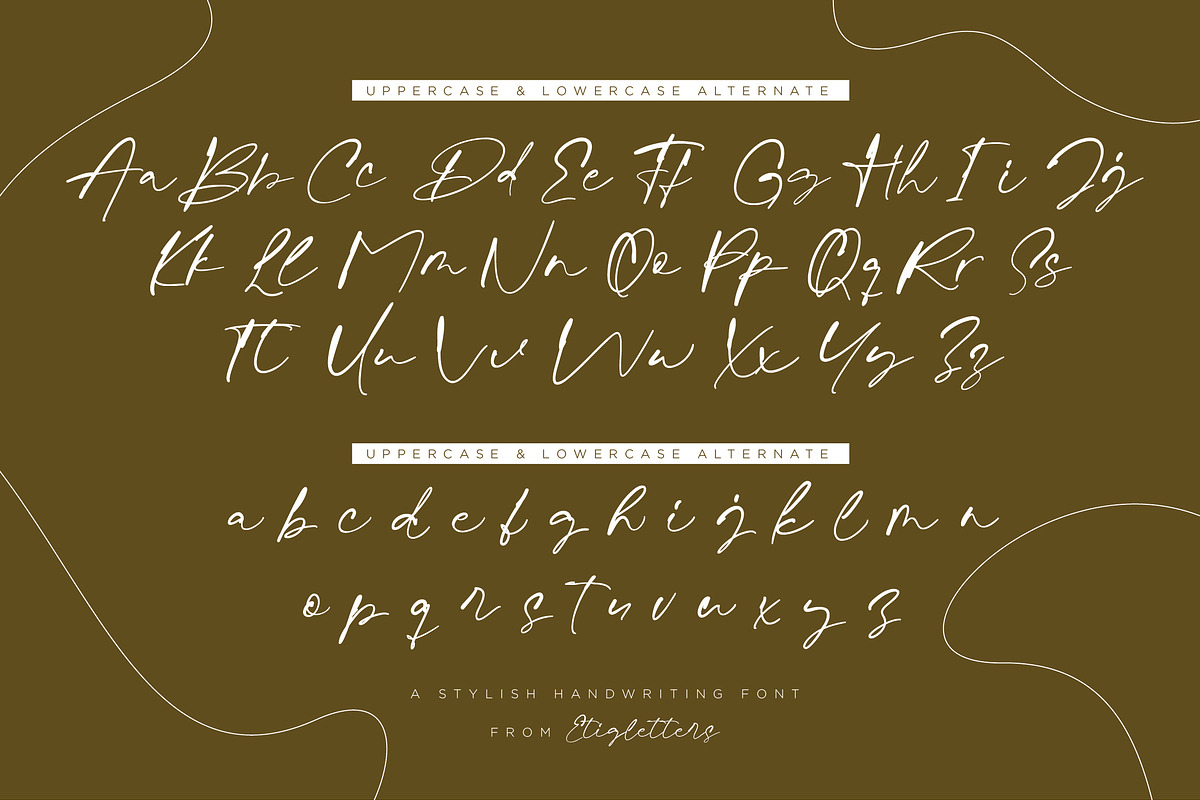 UPPERCASE & LOWERCASE ALTERNATE
Aa Bb Cc Dd Ee Ff Gg Hh Ii Jj
Kk Ll Mm Nn Oo Pp Qq Rr Ss
Tt Uu Vv Ww Xx Yy Zz
UPPERCASE & LOWERCASE ALTERNATE
a b c d e f g h i j k l m n
o p q r s t u v w x y z
A STYLISH HANDWRITING FONT
FROM Etigletters